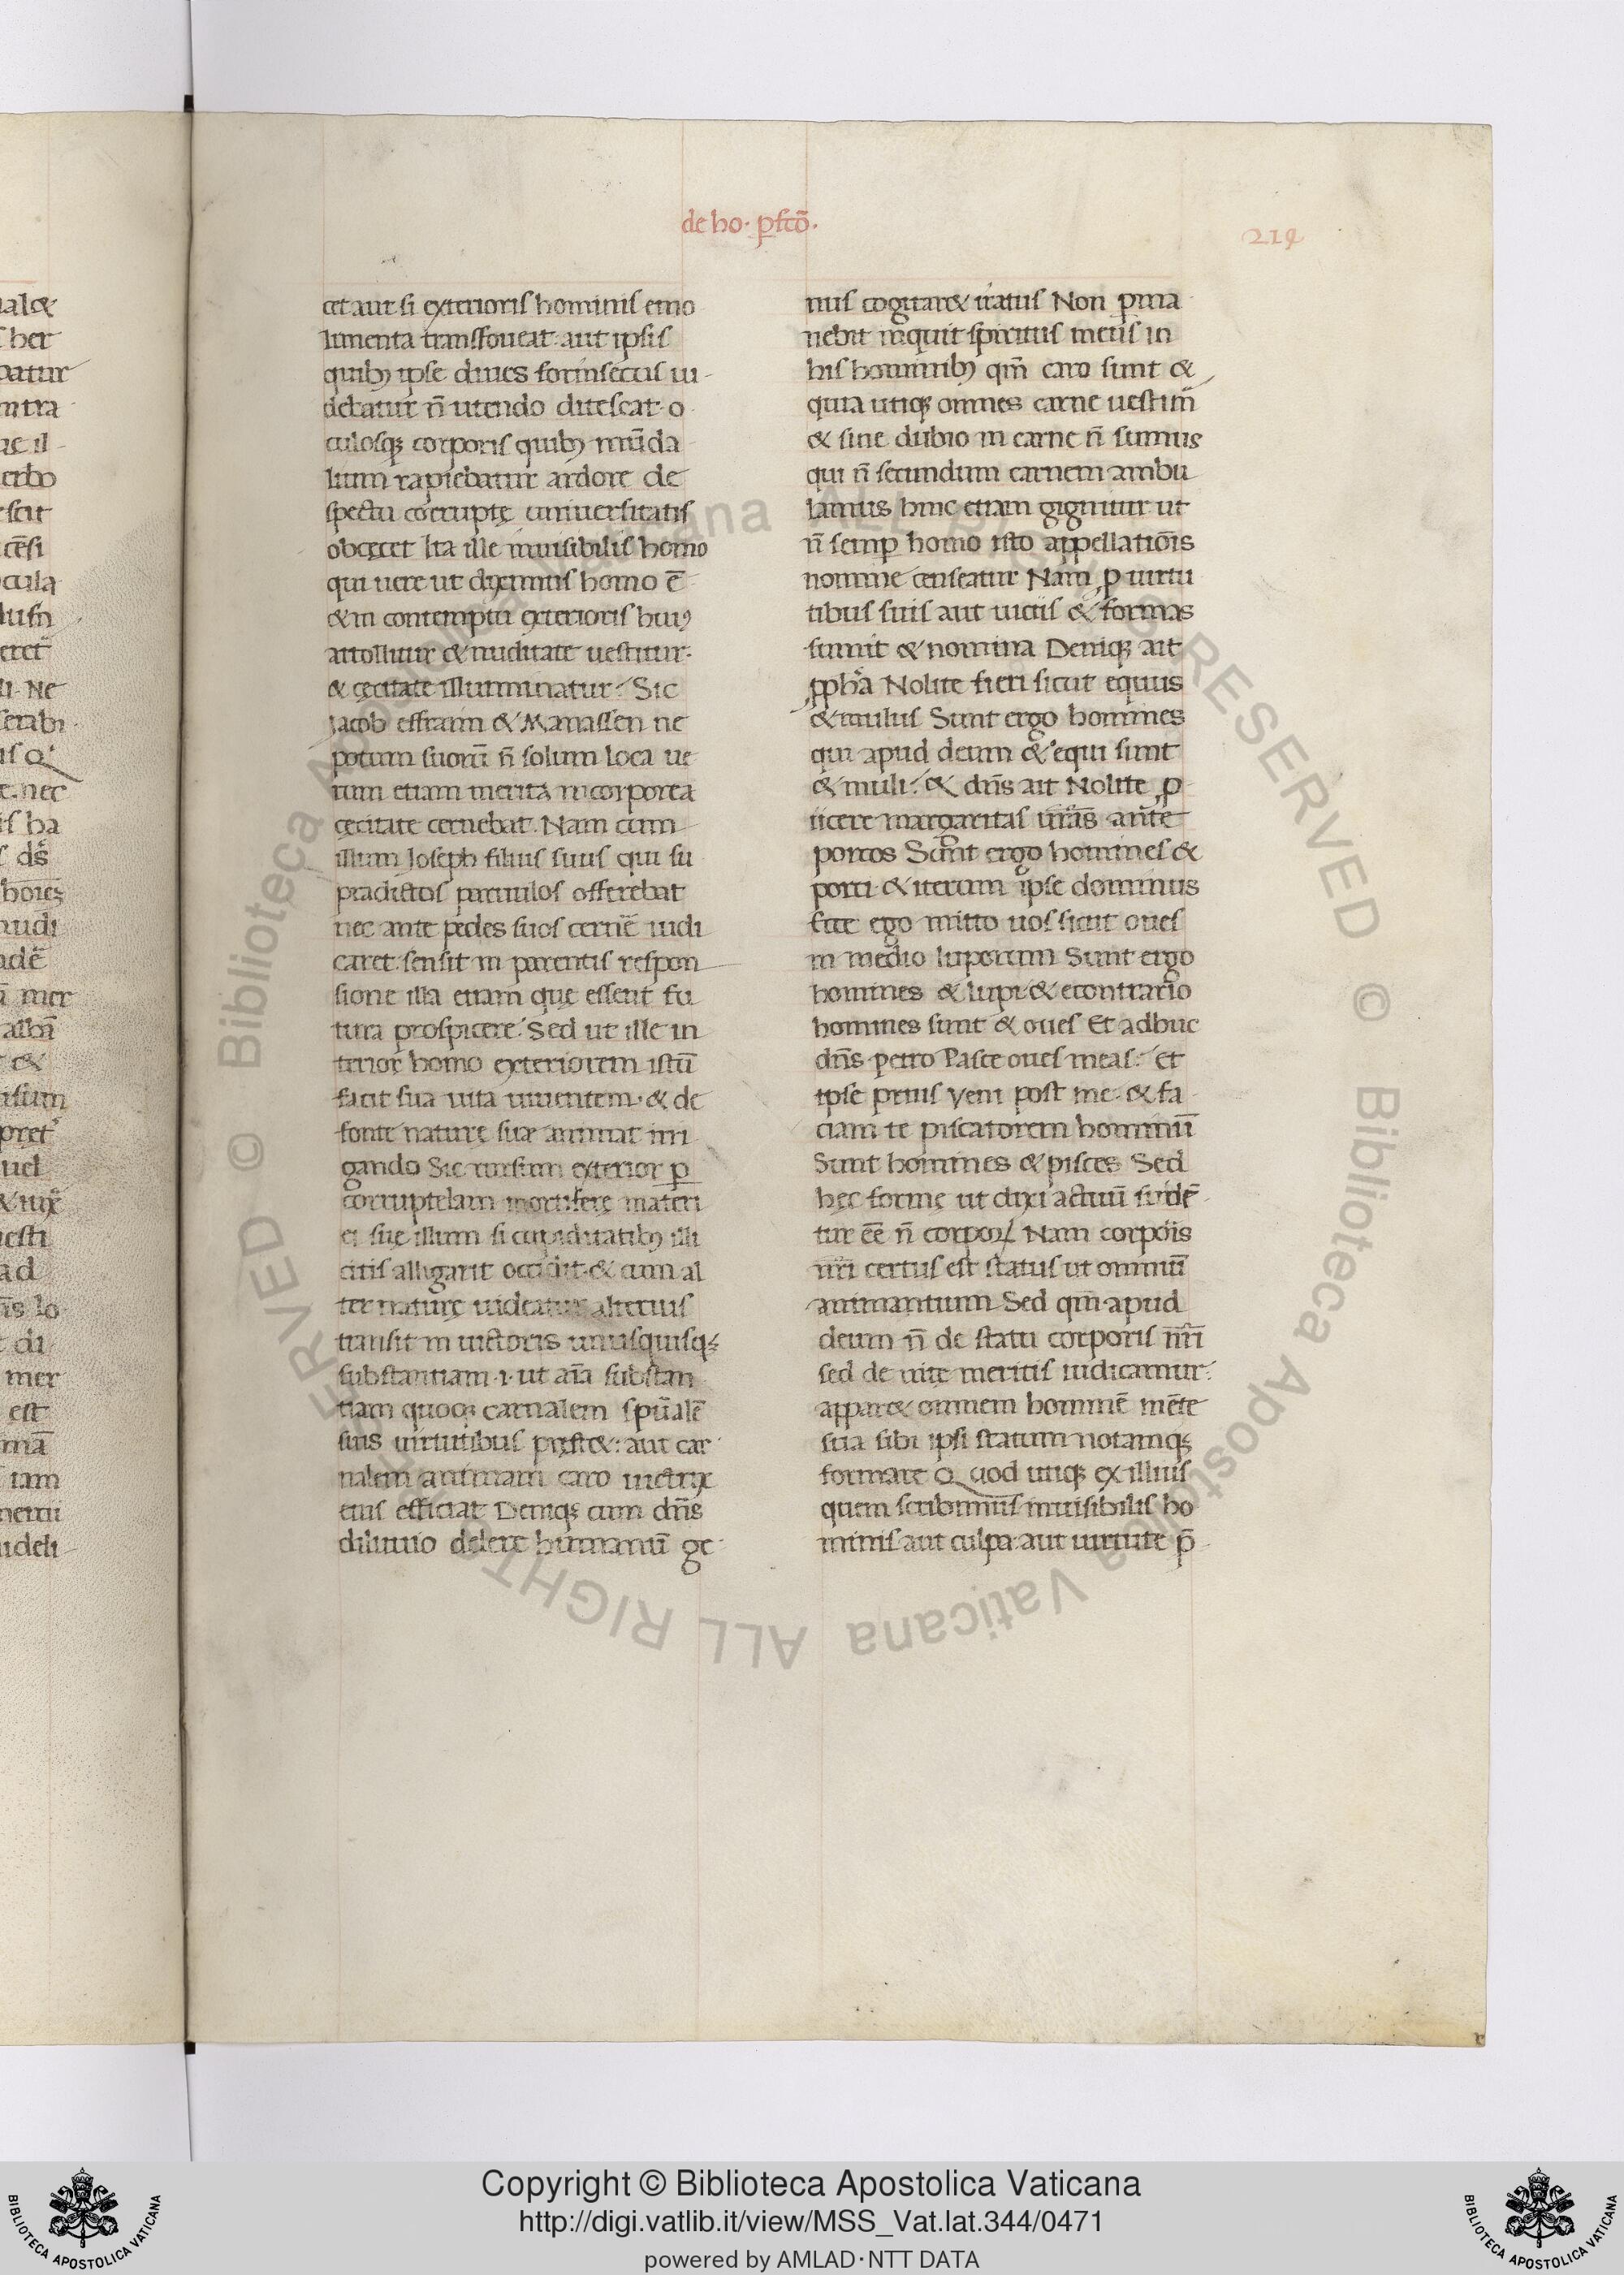 de ho. p̲fcō.
219
cet aut si exterioris hominis emo
lumenta transfoueat. aut ipsis
quibꝫ ipse diues forinsecus ui-
debatur n̄ utendo ditescat. o
culosqꝫ corporis quibꝫ mūda
lium rapiebatur ardore de
spectu corruptę uniuersitatis
obcęcet Ita ille inuisibilis homo
qui uere ut diximus homo ē
& in contemptu exterioris huiꝰ
attollitur & nuditate uestitur.
& cęcitate illuminatur. Sic
Iacob effraim & Manassen ne
potum suorū n̄ solum loca ue
rum etiam merita incorporea
cęcitate cernebat. Nam cum
illum Ioseph filius suus qui su
pradictos paruulos offerebat
nec ante pedes suos cernē iudi
caret. sensit in parentis respon
sione illa etiam quę essent fu
tura prospicere. Sed ut ille in
terior homo exteriorem istū
facit sua uita uiuentem. & de
fonte naturę suæ animat irri
gando Sic rursum exterior ꝑ
corruptelam mortiferę materi
ei suę illum si cupiditatibꝫ illi
citis alligarit occidit. & cum al
ter naturę uideatur alterius
transit in uictoris unusquisqꝫ
substantiam .i. ut aīa substan
tiam quoqꝫ carnalem sp̄ualē
suis uirtutibus pręst&: aut car
nalem animam caro uictrix
eius efficiat Deniqꝫ cum dn̄s
diluuio delere humanū ge
nus cogitar& iratus Non ꝑma
nebit inquit spiritus meus in
his hominibꝫ qm̄ caro sunt &
quia utiqꝫ omnes carne uestim̄
& sine dubio in carne n̄ sumus
qui n̄ secundum carnem ambu
lamus hinc etiam gignitur ut
n̄ semꝑ homo isto appellatiōis
nomine censeatur Nam ꝓ uirtu
tibus suis aut uiciis & formas
sumit & nomina Deniqꝫ ait
ꝓph̄a Nolite fieri sicut equus
& mulus Sunt ergo homines
qui apud deum & equi sunt
& muli. & dn̄s ait Nolite ꝓ
iicere margaritas ur̄as ante
porcos Sunt ergo homines &
porci. & iterum ipse dominus
Ecce ego mitto uos sicut oues
in medio luporum Sunt ergo
homines & lupi & econtrario
homines sunt & oues Et adhuc
dn̄s petro Pasce oues meas. Et
ipse prius Veni post me. & fa
ciam te piscatorem hominū
Sunt homines & pisces Sed
hęc formę ut dixi actuū suidē
tur eē n̄ corpoꝝ Nam corpōis
nr̄i certus est status ut omniū
animantium Sed qm̄ apud
deum n̄ de statu corporis nr̄i
sed de uitę meritis iudicamur.
appar& omnem hominē mēte
sua sibi ipsi statum notamqꝫ
formare Quod utiqꝫ ex illius
quem scribimus inuisibilis ho
minis aut culpa. aut uirtute p̄